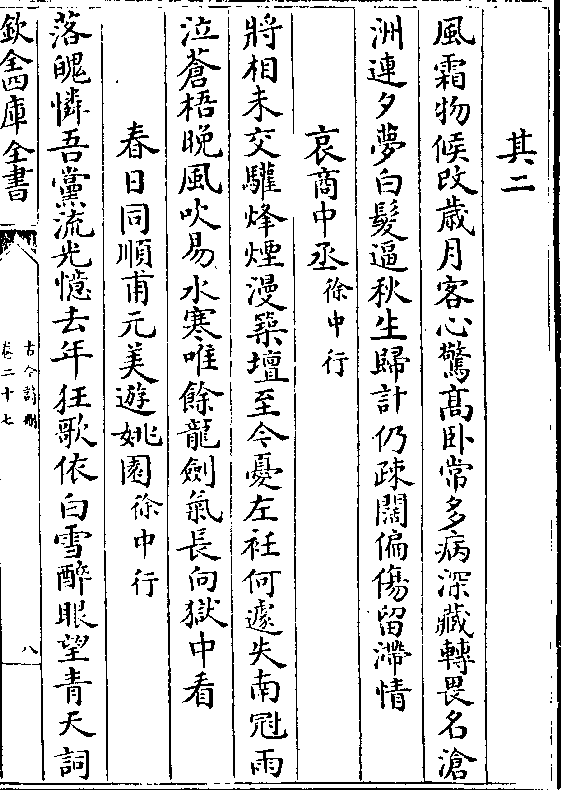 其二
風霜物候改歲月客心驚髙卧常多病深藏轉畏名滄
洲連夕夢白髮逼秋生歸計仍疎闊偏傷留滯情
哀商中丞徐中行
將相未交驩烽煙漫築壇至今憂左衽何遽失南冠雨
泣蒼梧晚風吹易水寒唯餘龍劍氣長向獄中看
春日同順甫元美遊姚園徐中行
落魄憐吾黨流光憶去年狂歌依白雪醉眼望青天詞
欽定四庫全書
古今詩刪
卷二十七
八